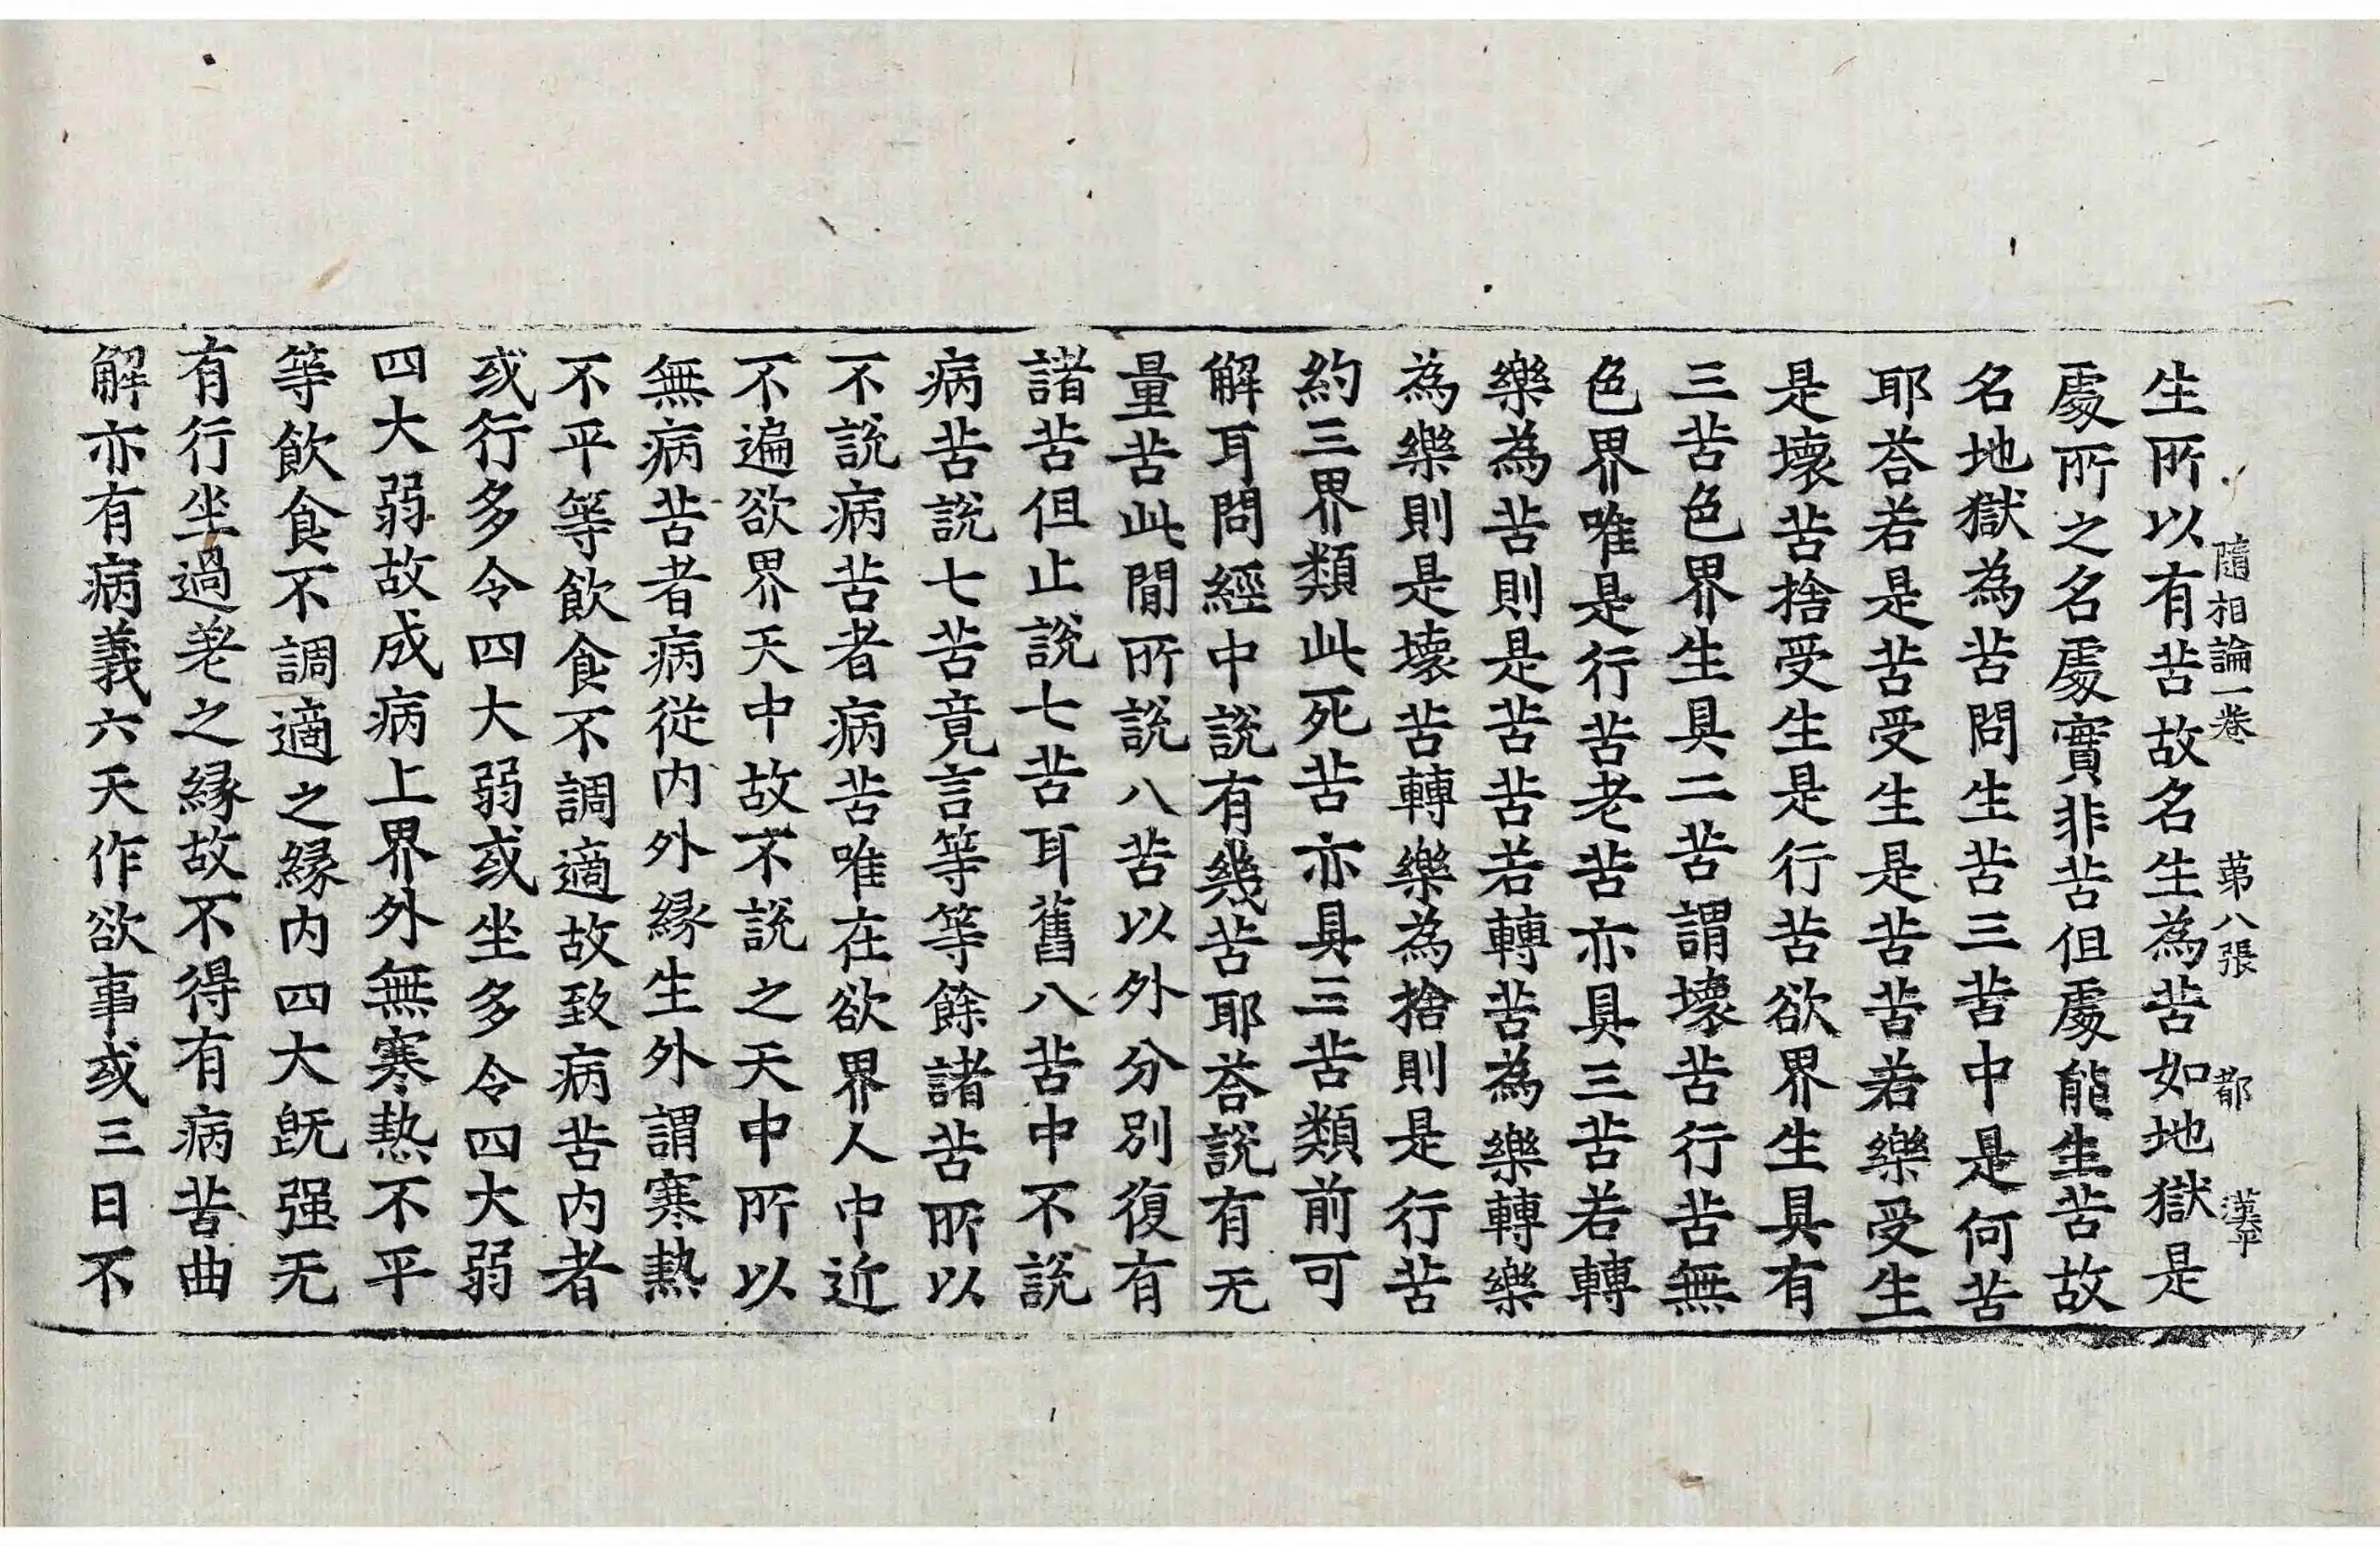 隨相論一卷　第八張　都
生所以有苦故名生為苦如地獄是
處所之名處實非苦但處能生苦故
名地獄為苦問生苦三苦中是何苦
耶荅若是苦受生是苦苦若樂受生
是壞苦捨受生是行苦欲界生具有
三苦色界生具二苦謂壞苦行苦無
色界唯是行苦老苦亦具三苦若轉
樂為苦則是苦苦若轉苦為樂轉樂
為樂則是壞苦轉樂為捨則是行苦
約三界類此死苦亦具三苦類前可
解耳問經中說有幾苦耶荅說有无
量苦此間所說八苦以外分別復有
諸苦但止說七苦耳舊八苦中不說
病苦說七苦竟言等等餘諸苦所以
不說病苦者病苦唯在欲界人中近
不遍欲界天中故不說之天中所以
無病苦者病從內外緣生外謂寒熱
不平等飲食不調適故致病苦內者
或行多令四大弱或坐多令四大弱
四大弱故成病上界外無寒熱不平
等飲食不調適之緣內四大旣强无
有行坐過差之緣故不得有病苦曲
解亦有病義六天作欲事或三日不